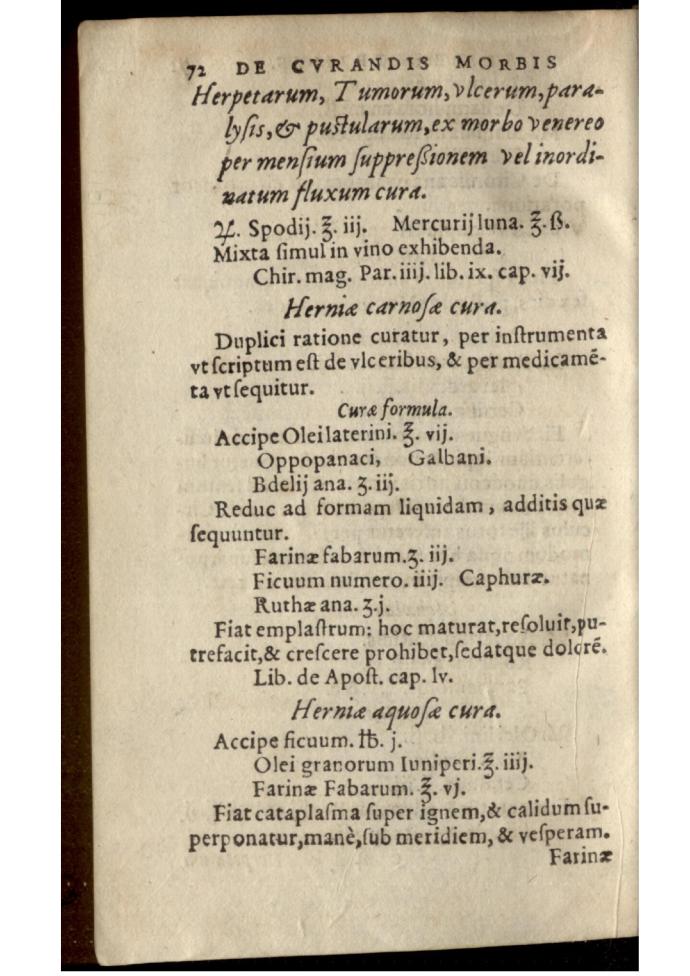 72 DE CVRANDIS MORBIS
Herpetarum, Tumorum, vlcerum, para-
lyſis, & puſtularum, ex morbo venereo
per menſium ſuppreßionem vel inordi-
natum fluxum cura.
♃. Spodij. ℥. iij. Mercurij luna. ℥. ß.
Mixta ſimul in vino exhibenda.
Chir. mag. Par. iiij. lib. ix. cap. vij.
Herniæ carnoſæ cura.
Duplici ratione curatur, per inſtrumenta
vt ſcriptum eſt de vlceribus, & per medicamē-
ta vt ſequitur.
Curæ formula.
Accipe Olei laterini. ℥. vij.
Oppopanaci, Galbani.
Bdelij ana. ʒ. iij.
Reduc ad formam liquidam, additis quæ
ſequuntur.
Farinæ fabarum. ʒ. iij.
Ficuum numero. iiij. Caphuræ.
Ruthæ ana. ʒ. j.
Fiat emplaſtrum: hoc maturat, reſoluit, pu-
trefacit, & creſcere prohibet, ſedatque dolorē.
Lib. de Apoſt. cap. lv.
Herniæ aquoſæ cura.
Accipe ficuum. ℔. j.
Olei granorum Iuniperi. ℥. iiij.
Farinæ Fabarum. ℥. vj.
Fiat cataplaſma ſuper ignem, & calidum ſu-
perponatur, manè, ſub meridiem, & veſperam.
Farinæ